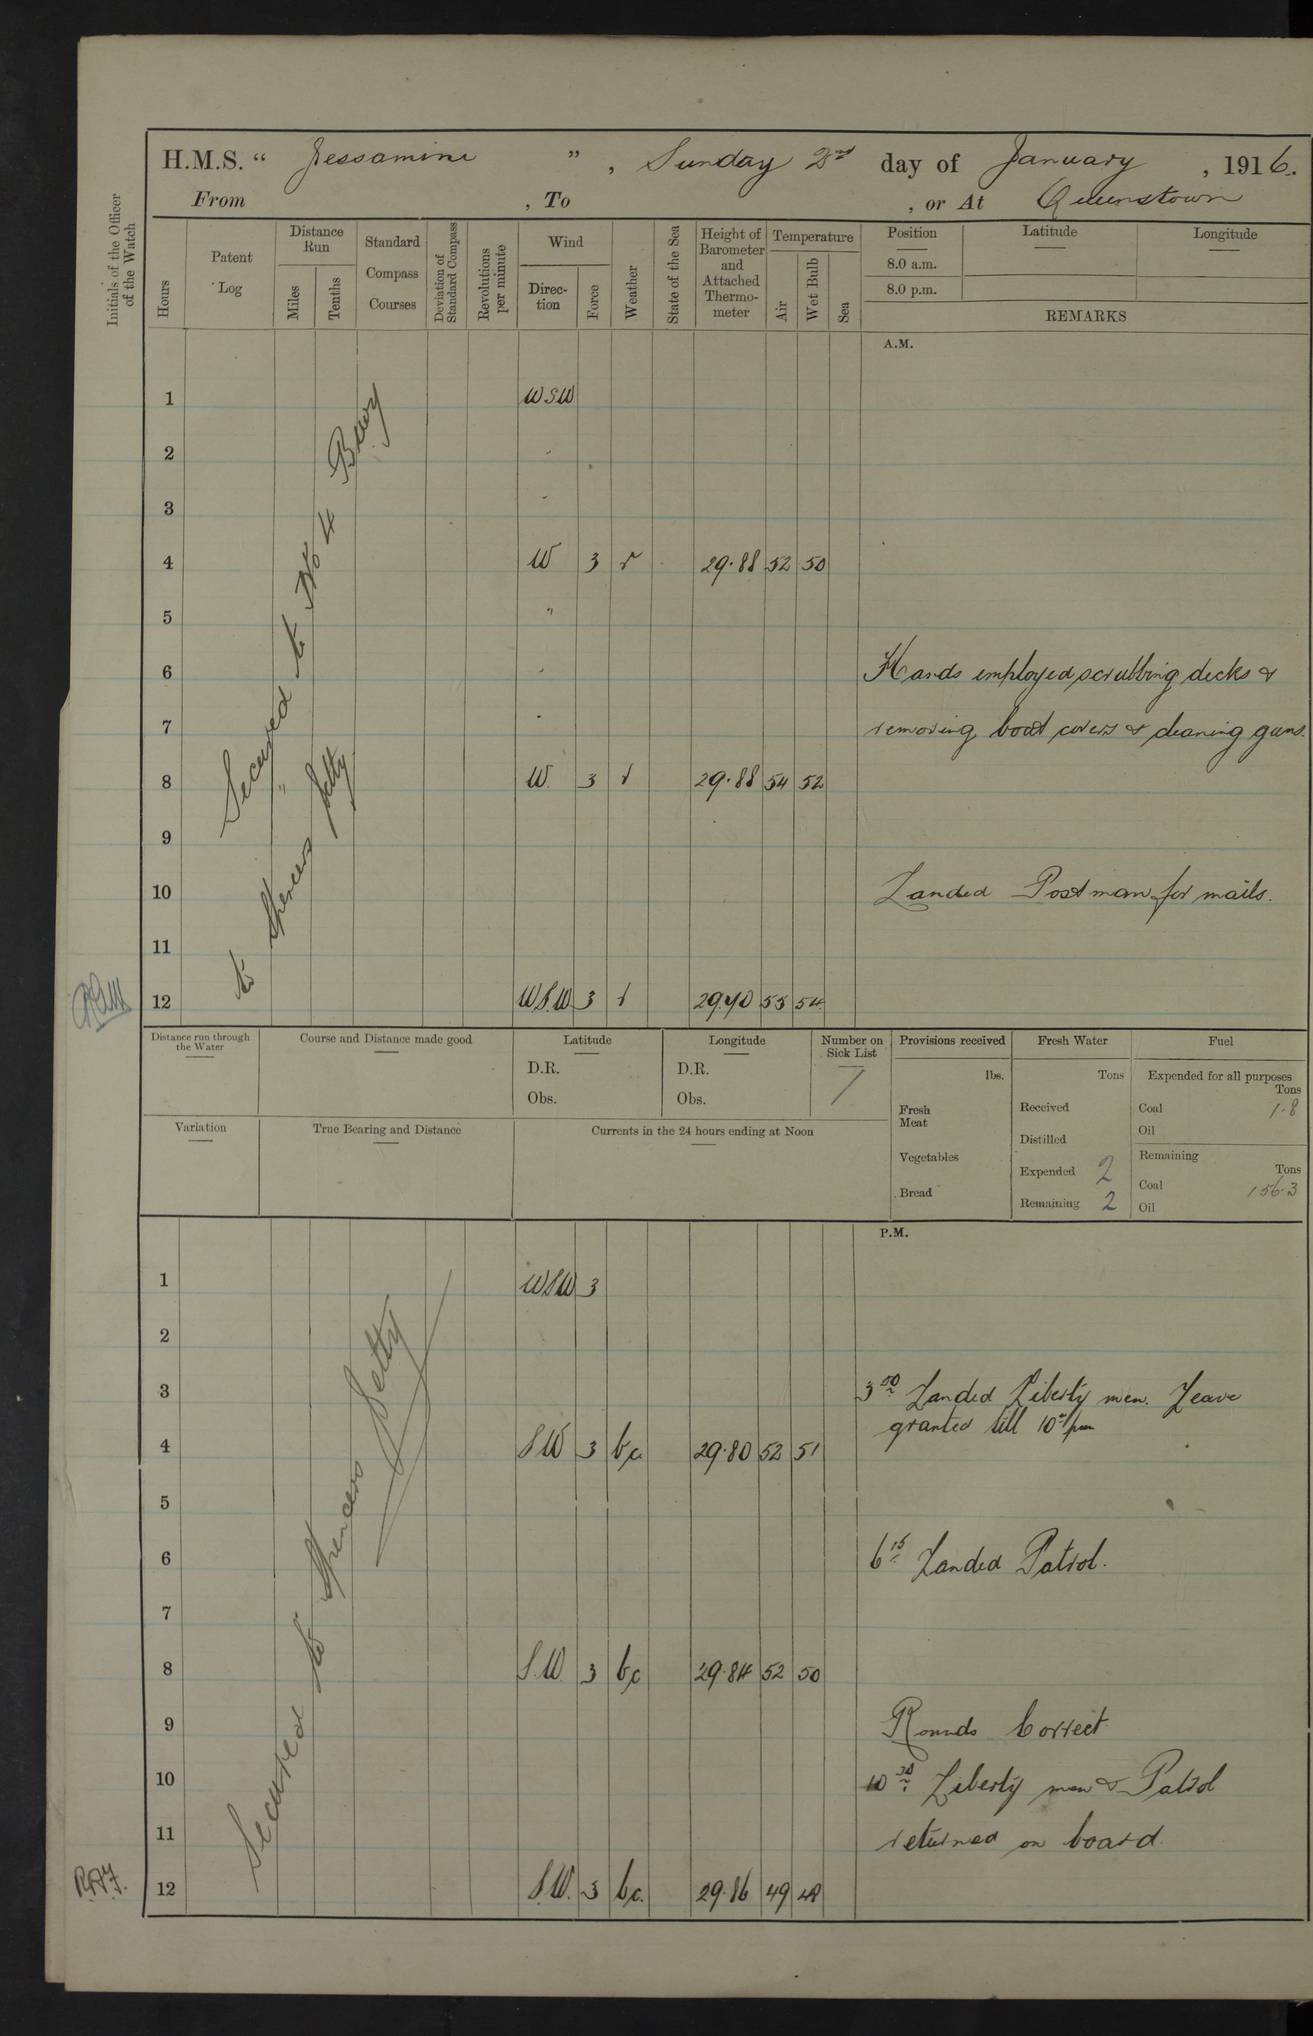 H.M.S. “ Jessamine ” , Sunday 2nd day of January , 1916.
From , To , or At Queenstown
Initials of the Officer of the Watch
Hours
Patent Log
Distance Run
Miles
Tenths
Standard Compass Courses
Deviation of Standard Compass
Revolutions per minute
Wind
Direction
Force
Weather
State of the Sea
Height of Barometer and Attached Thermometer
Temperature
Air
Wet Bulb
Sea
Position Latitude Longitude
8.0 a.m.
8.0 p.m.
REMARKS
A.M.
1 WSW
2 "
3 "
4 W 3 r 29.88 52 50
5 "
6 " Hands employed scrubbing decks &
7 " removing boat covers & cleaning guns.
8 W. 3 r 29.88 54 52
9
10 Landed Postman for mails.
11
12 WSW 3 r 55 54
Secured to No 4 Buoy
" to Spencers Jetty
Distance run through the Water
Course and Distance made good
Latitude
D.R.
Obs.
Longitude
D.R.
Obs.
Number on Sick List
Provisions received
lbs.
Fresh Meat
Vegetables
Bread
Fresh Water
Tons
Received
Distilled
Expended 2
Remaining 2
Fuel
Expended for all purposes
Tons
Coal 1.8
Oil
Remaining
Tons
Coal 156.3
Oil
Variation
True Bearing and Distance
Currents in the 24 hours ending at Noon
P.M.
1 WSW 3
2
3 3 30 Landed Liberty men. Leave
granted till 10 pm
4 SW 3 bc 29.80 52 51
5
6 6 15 Landed Patrol.
7
8 S.W. 3 bc 29.84 52 50
9 Rounds Correct
10 10 30 Liberty men & Patrol
11 returned on board.
12 S.W. 3 bc. 29.86 49 48
Secured to Spencers Jetty